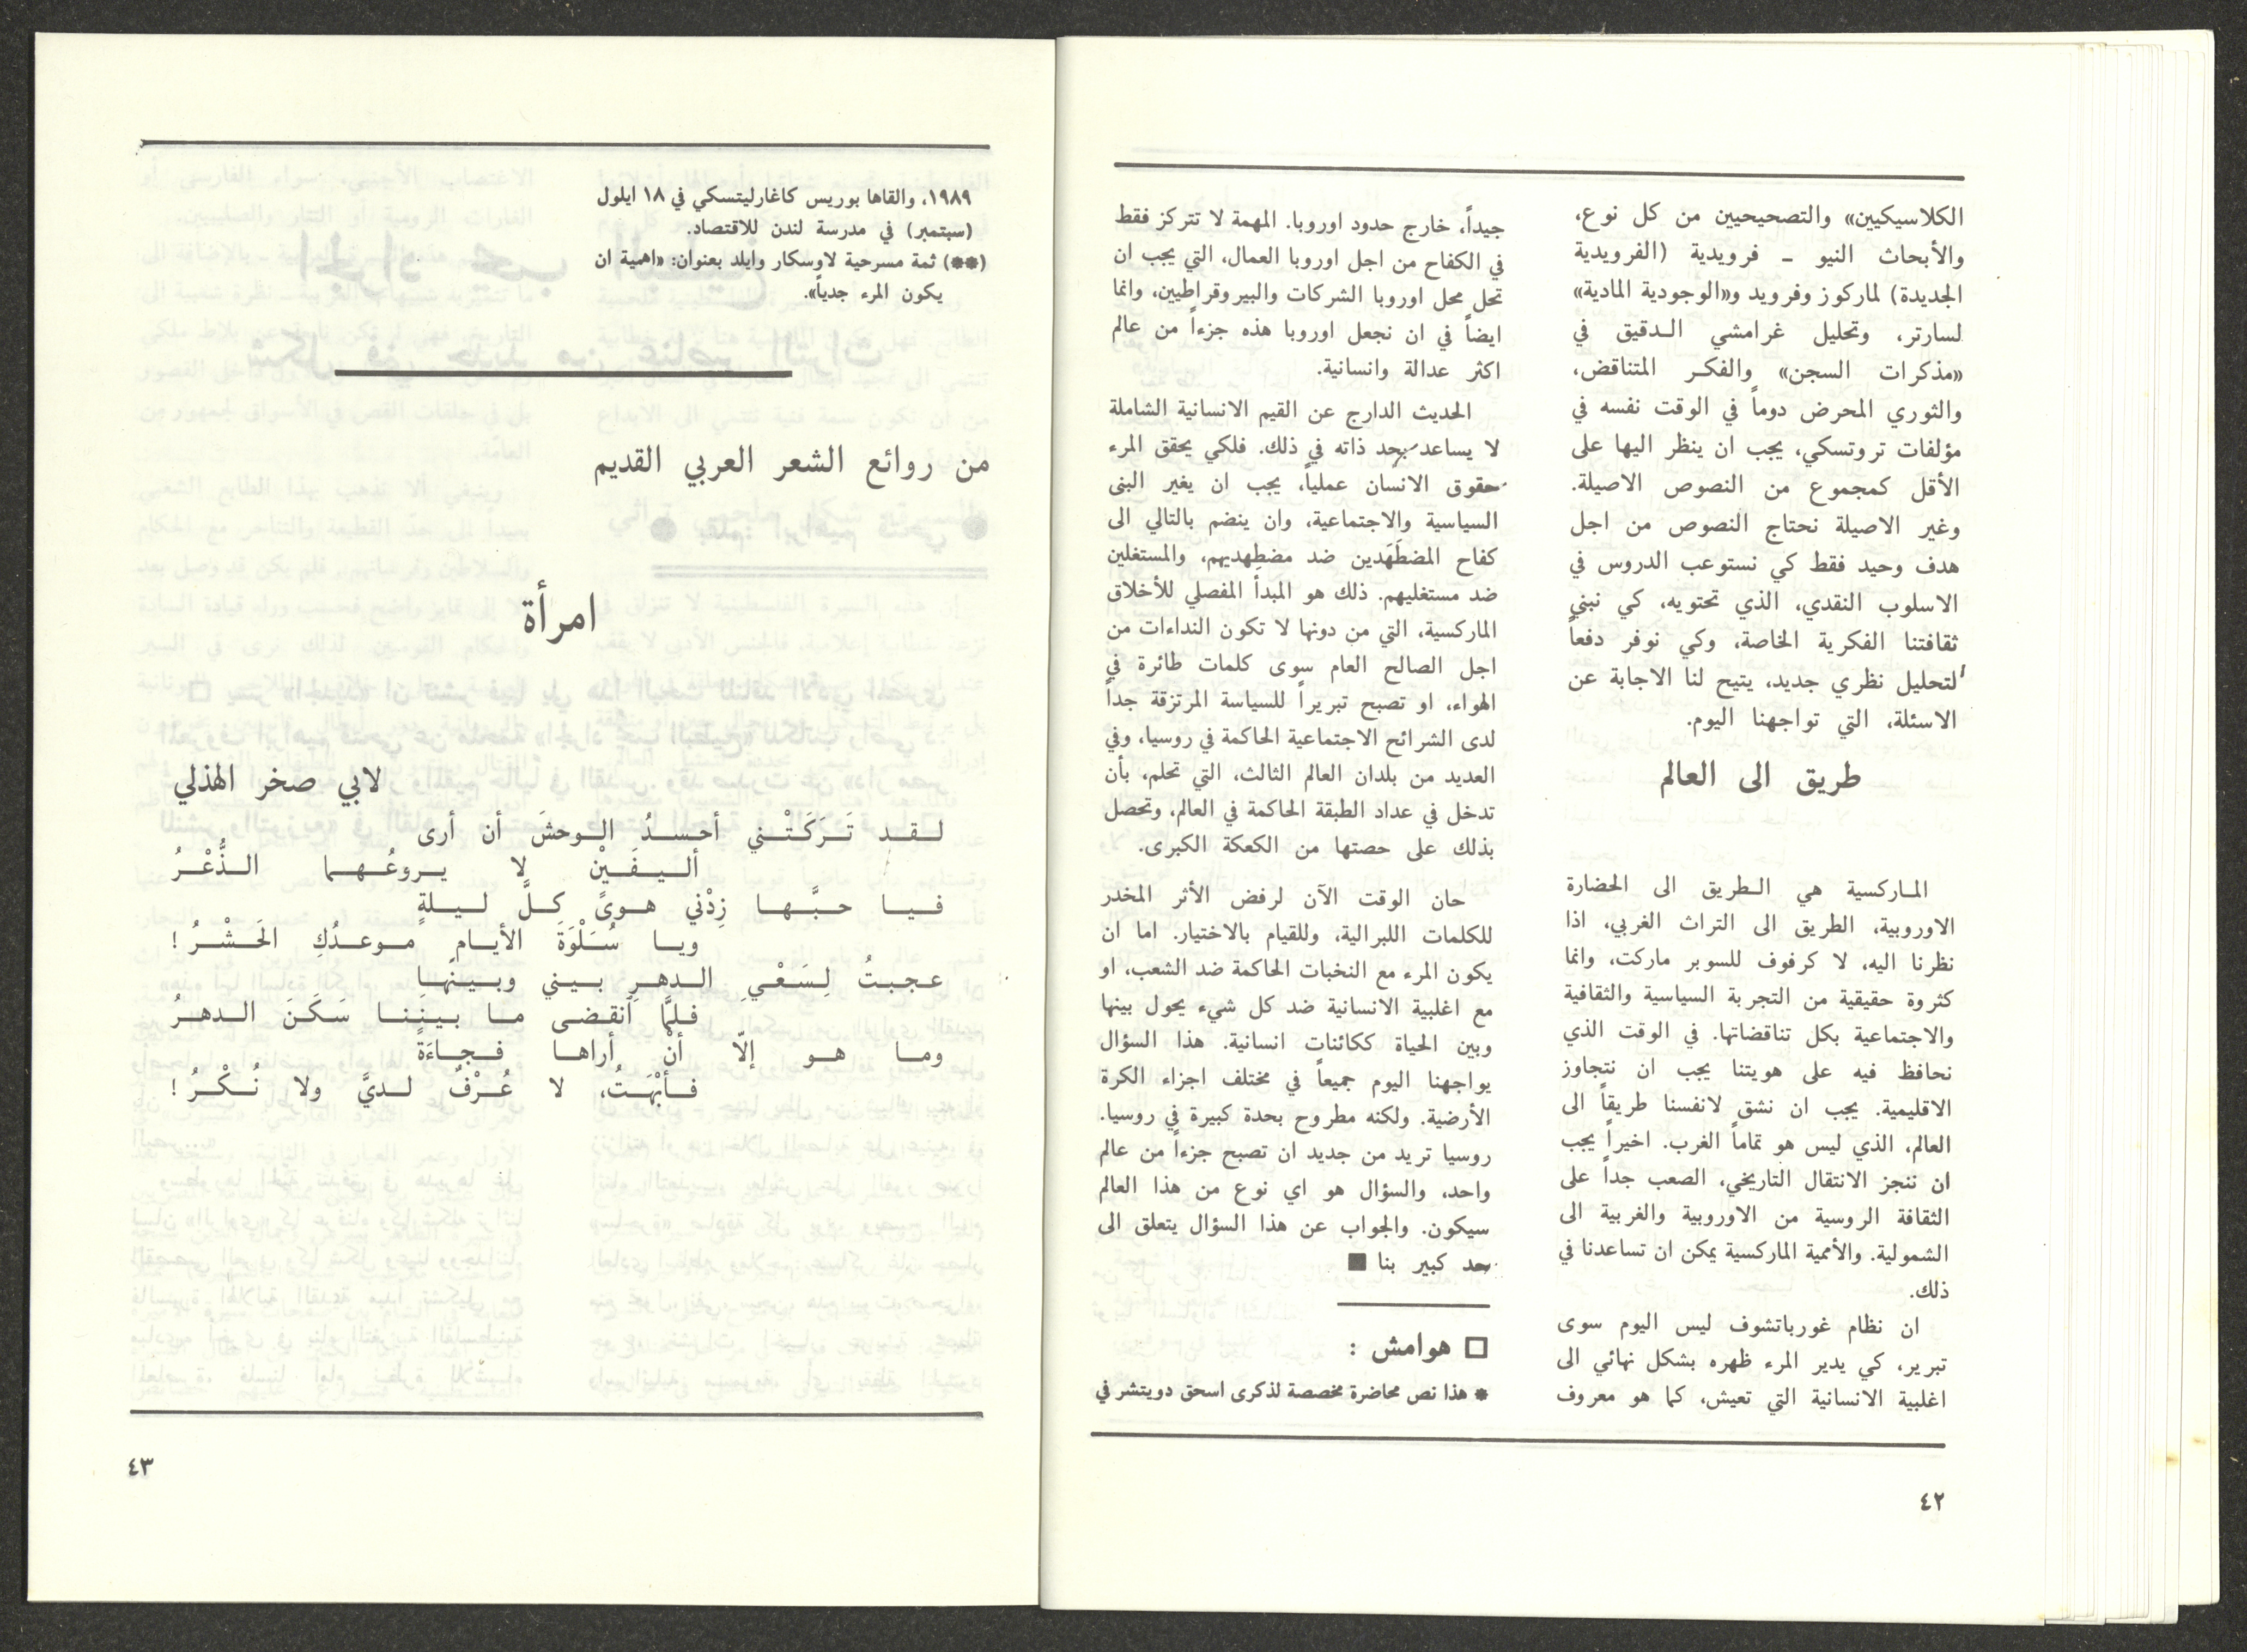 الكلاسيكيين» والتصحيحيين من كل نوع،
والأبحاث النيو ـ فرويدية (الفرويدية
الجديدة) لماركوز وفرويد و«الوجودية المادية»
لسارتر، وتحليل غرامشي الـدقيق في
«مذكرات السجن» والفكـر المتناقض،
والثوري المحرض دوماً في الوقت نفسه في
مؤلفات تروتسكي، يجب ان ينظر اليها على
الأقل كمجموع من النصوص الاصيلة.
وغير الاصيلة نحتاج النصوص من اجل
هدف وحيد فقط كي نستوعب الدروس في
الاسلوب النقدي، الذي تحتويه، كي نبني
ثقافتنا الفكرية الخاصة، وكي نوفر دفعاً
لتحليل نظري جديد، يتيح لنا الاجابة عن
الاسئلة، التي تواجهنا اليوم.
طريق الى العالم
المـاركسية هي الـطريق الى الحضارة
الاوروبية، الطريق الى التراث الغربي، اذا
نظرنا اليه، لا كرفوف للسوبر ماركت، وانما
كثروة حقيقية من التجربة السياسية والثقافية
والاجتماعية بكل تناقضاتها. في الوقت الذي
نحافظ فيه على هويتنا يجب ان نتجاوز
الاقليمية. يجب ان نشق لانفسنا طريقاً الى
العالم، الذي ليس هو تماماً الغرب. اخيراً يجب
ان ننجز الانتقال التاريخي، الصعب جداً على
الثقافة الروسية من الاوروبية والغربية الى
الشمولية. والأممية الماركسية يمكن ان تساعدنا في
ذلك.
ان نظام غورباتشوف ليس اليوم سوى
تبرير، كي يدير المرء ظهره بشكل نهائي الى
اغلبية الانسانية التي تعيش، كما هو معروف
جيداً، خارج حدود اوروبا. المهمة لا تتركز فقط
في الكفاح من اجل اوروبا العمال، التي يجب ان
تحل محل اوروبا الشركات والبيروقراطيين، وانما
ايضاً في ان نجعل اوروبا هذه جزءاً من عالم
اكثر عدالة وانسانية.
الحديث الدارج عن القيم الانسانية الشاملة
لا يساعد بحد ذاته في ذلك. فلكي يحقق المرء
حقوق الانسان عملياً، يجب ان يغير البنى
السياسية والاجتماعية، وان ينضم بالتالي الى
كفاح المضطَهَدين ضد مضطِهديهم، والمستغلين
ضد مستغليهم. ذلك هو المبدأ المفصلي للأخلاق
الماركسية، التي من دونها لا تكون النداءات من
اجل الصالح العام سوى كلمات طائرة في
الهواء، او تصبح تبريراً للسياسة المرتزقة جداً
لدى الشرائح الاجتماعية الحاكمة في روسيا، وفي
العديد من بلدان العالم الثالث، التي تحلم، بأن
تدخل في عداد الطبقة الحاكمة في العالم، وتحصل
بذلك على حصتها من الكعكة الكبرى.
حان الوقت الآن لرفض الأثر المخدر
للكلمات اللبرالية، وللقيام بالاختيار. اما ان
يكون المرء مع النخبات الحاكمة ضد الشعب، او
مع اغلبية الانسانية ضد كل شيء يحول بينها
وبين الحياة ككائنات انسانية. هذا السؤال
يواجهنا اليوم جميعاً في مختلف اجزاء الكرة
الأرضية. ولكنه مطروح بحدة كبيرة في روسيا.
روسيا تريد من جديد ان تصبح جزءاً من عالم
واحد، والسؤال هو اي نوع من هذا العالم
سيكون. والجواب عن هذا السؤال يتعلق الى
حد كبير بنا ■
□ هوامش :
* هذا نص محاضرة مخصصة لذكرى اسحق دويتشر في
٤٢
١٩٨٩، والقاها بوريس كاغارليتسكي في ١٨ ايلول
(سبتمبر) في مدرسة لندن للاقتصاد.
(**) ثمة مسرحية لاوسكار وايلد بعنوان: «اهمية ان
يكون المرء جدياً».
من روائع الشعر العربي القديم
امرأة
لابي صخر الهذلي
لـقـد تَـرَكَـتْـني أحـسـدُ الـوحشَ أن أرى
ألـيـفَـيْن لا يـروعُـهـما الـذُّعْـرُ
فـيـا حـبَّـهـا زِدْني هـوىً كـلَّ لـيـلةٍ
ويـا سُـلْوَةَ الأيـام مـوعـدُكِ الحَـشْـرُ !
عـجـبـتُ لِـسَـعْـيِ الـدهـرِ بـيـني وبـيـنَـهـا
فـلمَّا ٱنـقـضى مـا بـيـنِـنـا سَـكَـنَ الـدهـرُ
ومـا هـو إلاّ أنْ أراهـا فـجـاءَةً
فـأبْهَـتُ، لا عُـرْفٌ لـديَّ ولا نُـكْـرُ !
٤٣